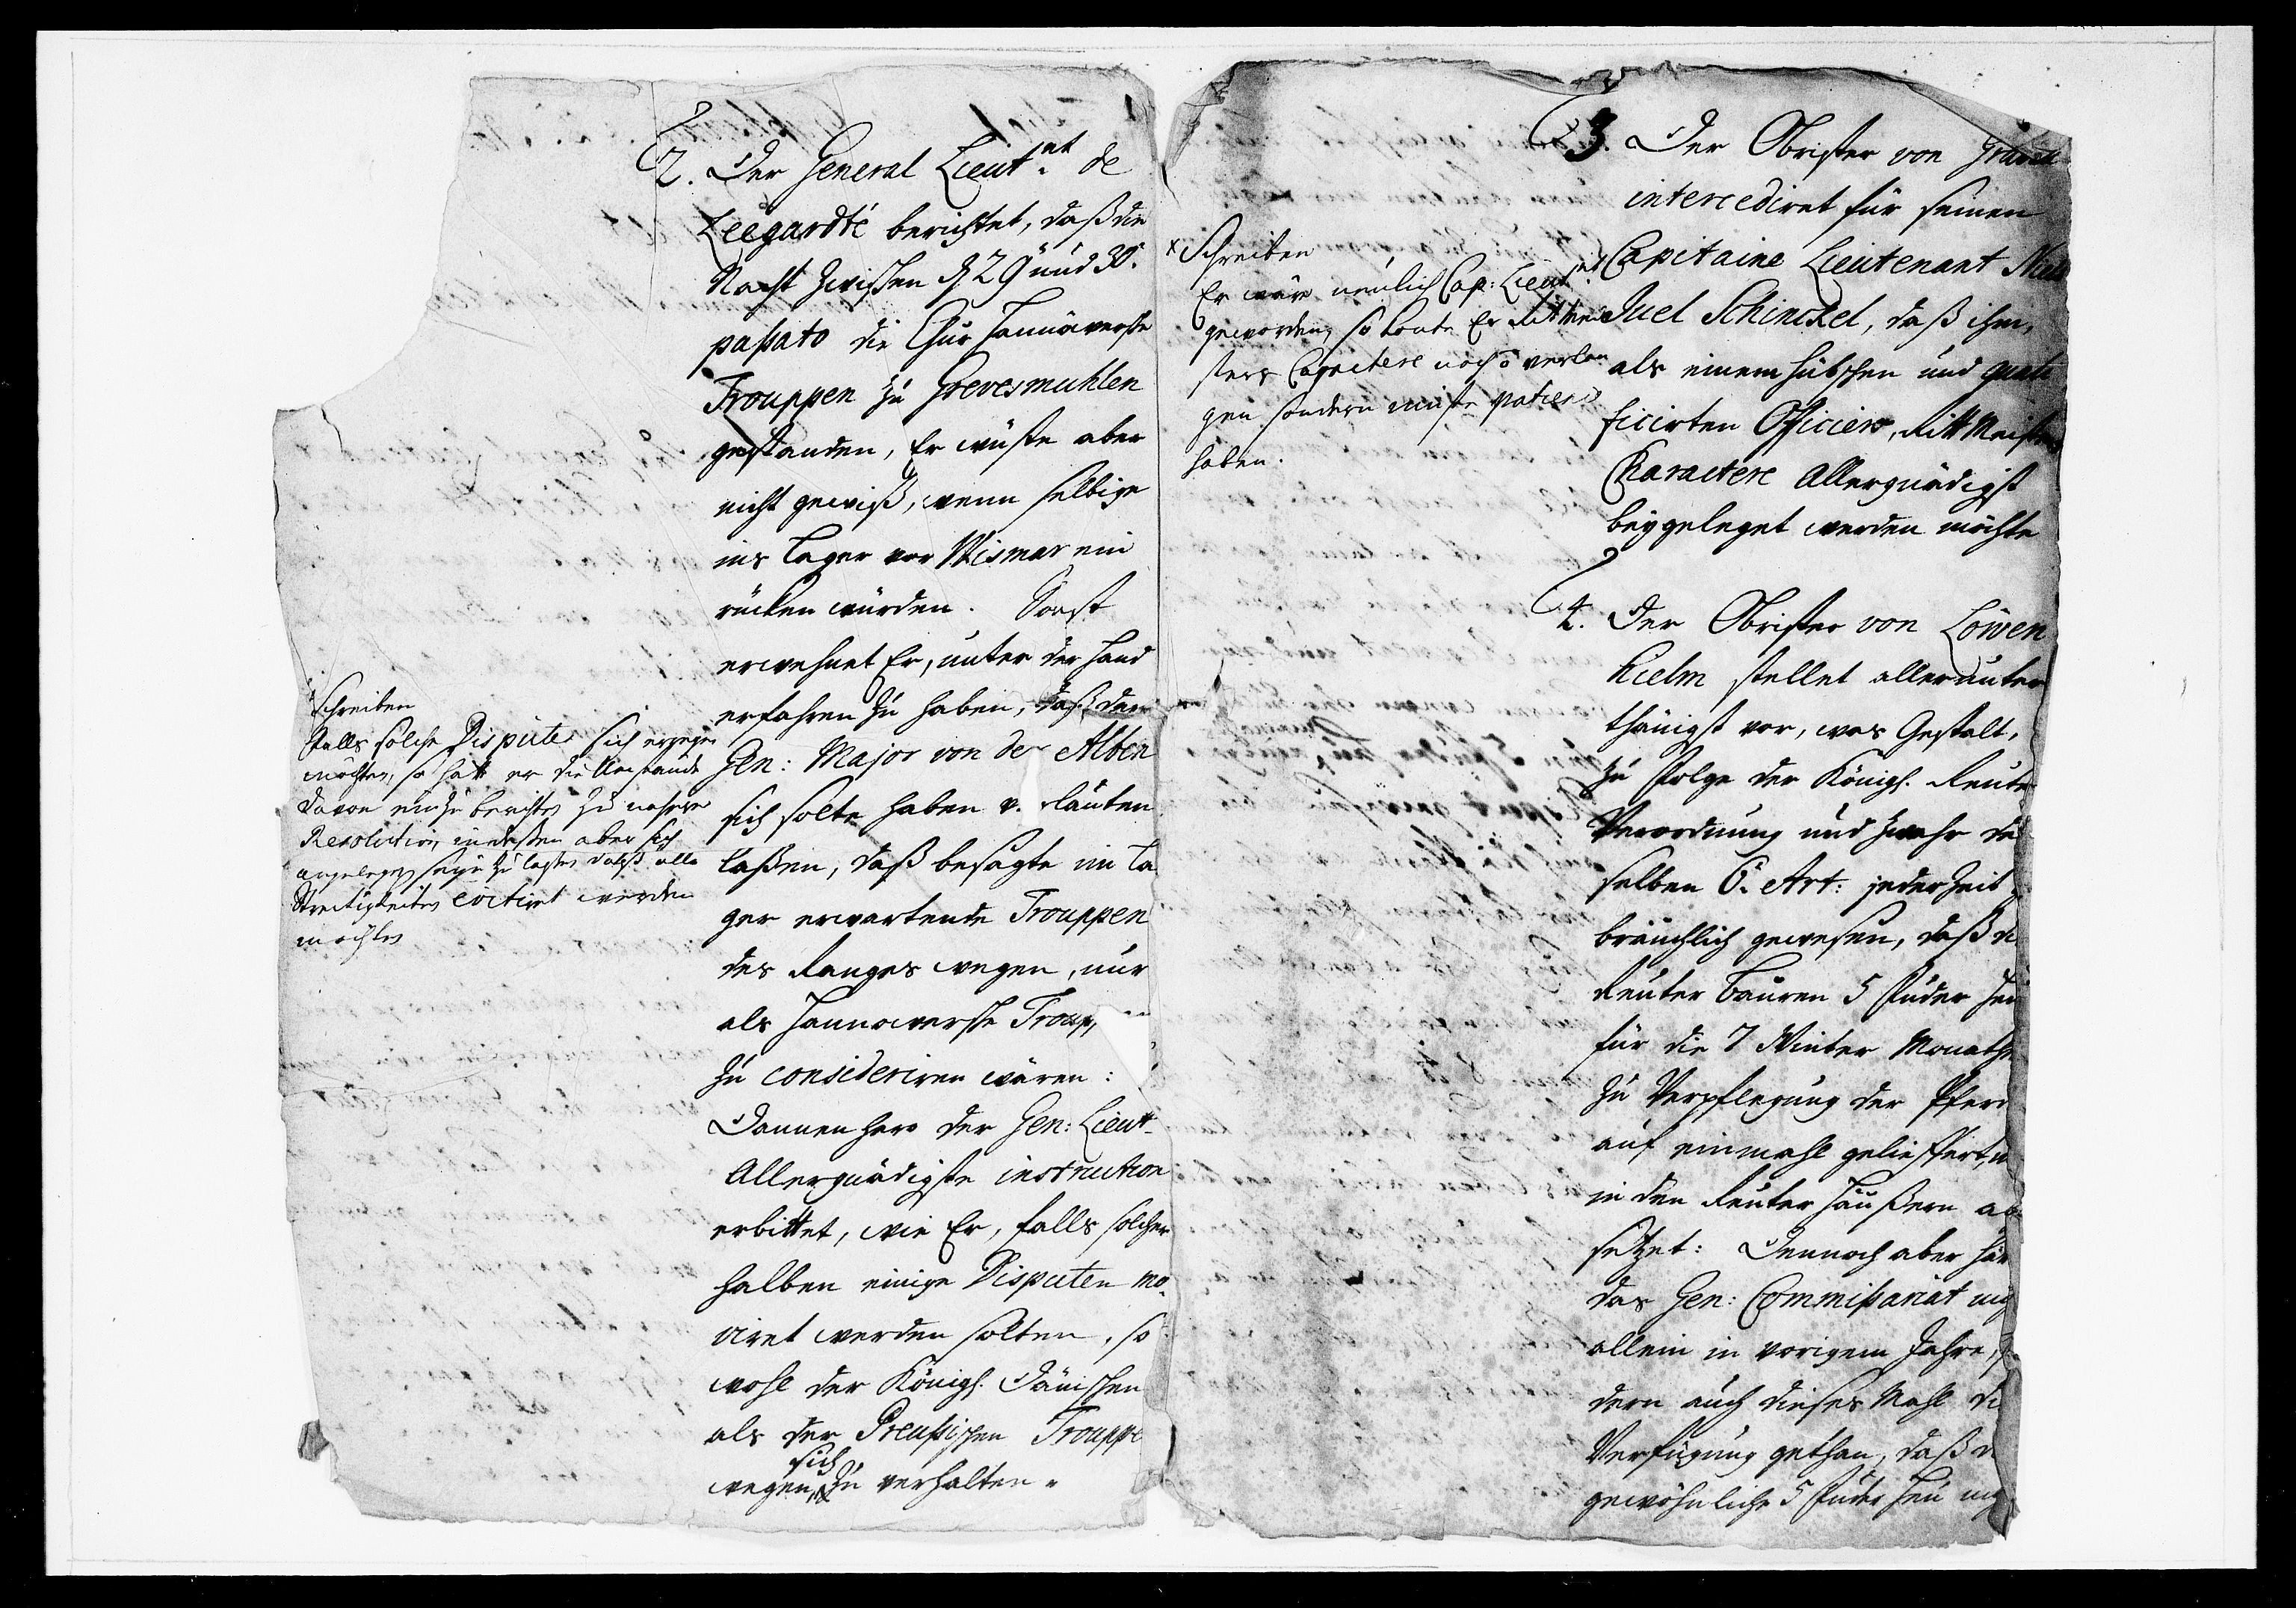 2. Der General Lieut.nt de
Leegardté berichtet, daß die
Nacht zwischen d. 29 und 30.
passato die Chur Hannoversche
Trouppen zu Grevesmuhlen
gestanden, Er wüste aber
nicht gewiß, wenn selbige
ins Lager vor Wismar ein
rücken würden. Sonst
erwehnet Er, unter der Hand
erfahren zu haben, daß der
Gen: Major von der Alben
sich solte haben v. rlauten
laßen, daß besagte im La
ger erwartende Trouppen
des Ranges wegen, nur
als Hannoversche Troup
zu consideriren wären:
Dannenhero der Gen: Lieut
Allergnädigste instruction
erbittet, wie Er, falls solcher
halben einige Disputen mo
viret werden solten, so
wohl der Königl. Dänischen
als der Preußischen Trouppe
sich
wegen, zu verhalten.
Schreiben
Falls solche Dispute sich eregen
möchten, so hätt er die Umstände
davon einzuberichten zu nahrer
Resolution, indeßen aber sich
angelegen seyn zu laßen daß alle
Streitigkeiten evitiret werden
möchten
3 Der Obrister von
intercediret für seinen
Capitaine Lieutenant Niels
Juel Schinckel, daß ihm,
als einem hübschen und quali
ficirten Officier, Ritt Meisters
Charactere Allergnädigst
beygeleget werden möchte
x Schreiben
Er wäre neulich Cap: Lieut.nt
geworden, so konte Er Rittmei
sters Caractere noch verlan
gen sondern müste patience
haben.
4. Der Obrister von Löwen
hielm stellet allerunter
thänigst vor, was Gestalt,
zu Folge der Königl. Reuter
Verordnung und zwahr de
selben 6. Art: jederzeit g
bräuchlich gewesen, daß di
Reuter Bauren 5 Fuder Heu
für die 7 Winter Monathe
zu Verpflegung der Pferd
auf einmahl geliefert, u
in den Reuter Häußern ab
setzet: Dennoch aber hät
das Gen: Commissariat nic
allein in vorigem Jahre, s
dern auch dieses Mahl di
Verfügung gethan, daß d
gewöhnliche 5 Fuder Heu nic